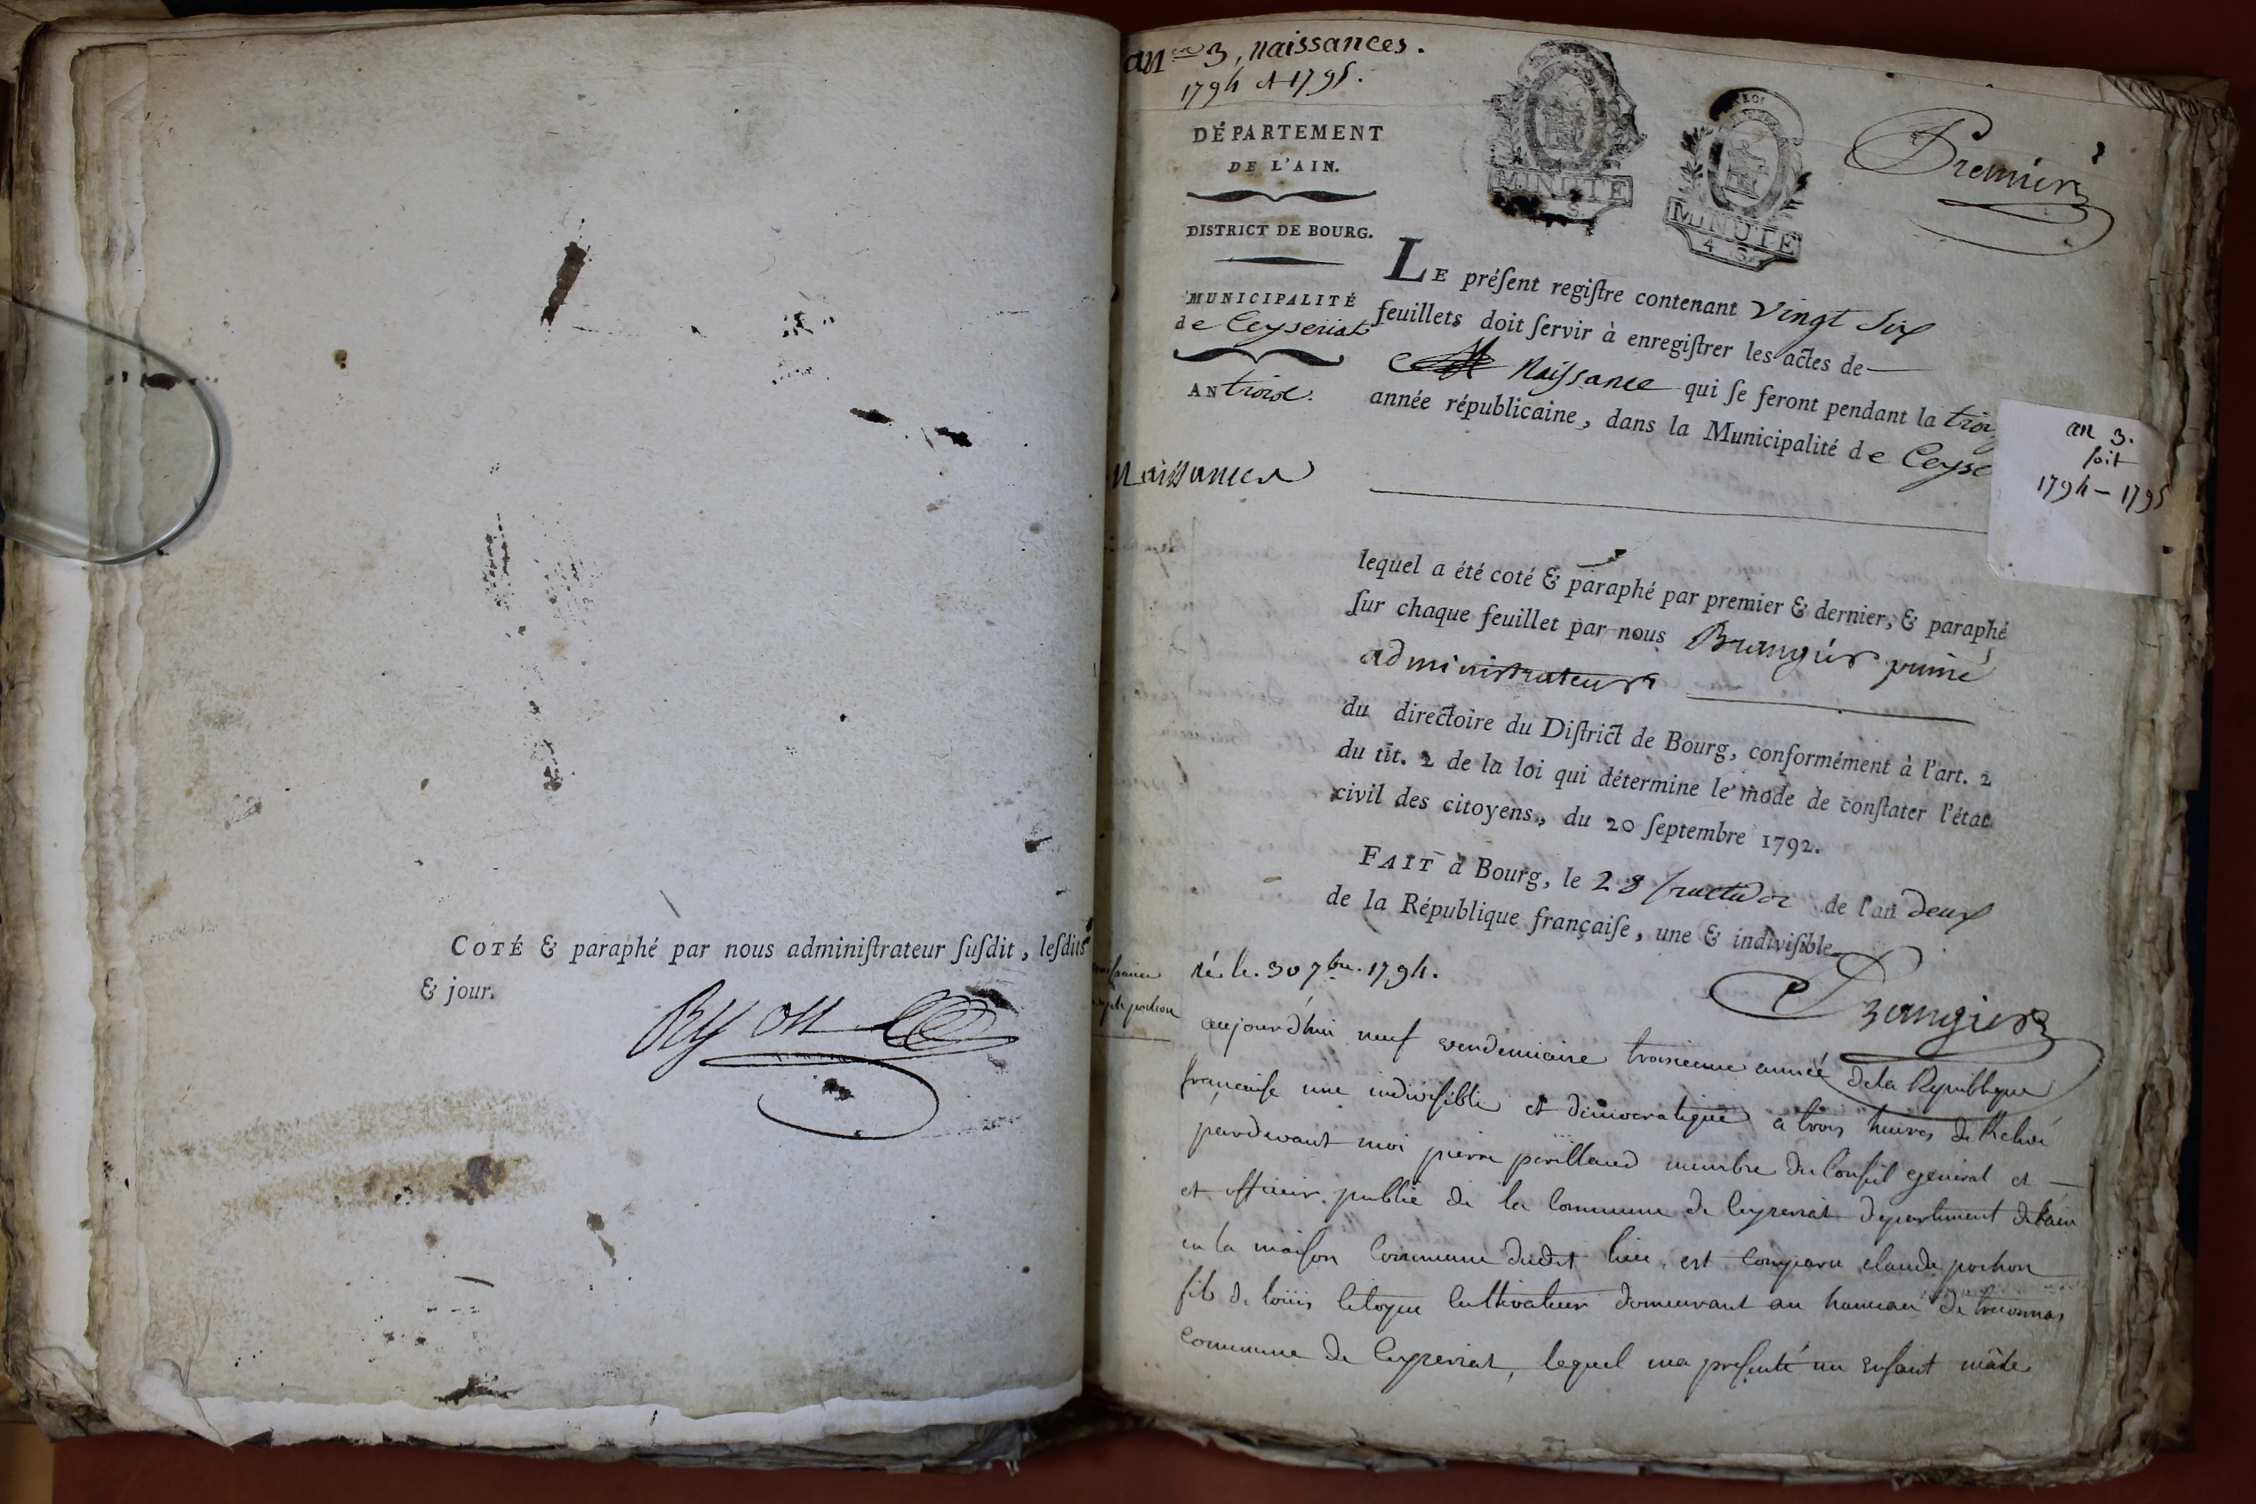 COTÉ & paraphé par nous adminiſtrateur ſuſdit, leſdits
& jour.
an 3, naissances.
1794 et 1795.
DÉPARTEMENT
DE L'AIN.
DISTRICT DE BOURG.
MUNICIPALITÉ
de Ceyseriat
AN trois.
Naissances
MINUTE
MINUTE
4 S.
Premier
LE préſent regiſtre contenant vingt six
feuillets doit ſervir à enregiſtrer les actes de
Naissance qui ſe feront pendant la
année républicaine, dans la Municipalité de Ceyse
an 3.
soit
1794 - 1795
lequel a été coté & paraphé par premier & dernier, & paraphé
ſur chaque feuillet par nous Brangier puiné
administrateur
du directoire du Diſtrict de Bourg, conformément à l'art. 2
du tit. 2 de la loi qui détermine le mode de conſtater l'état
civil des citoyens, du 20 ſeptembre 1792.
FAIT à Bourg, le 28 fructidor de l'an deux
de la République françaiſe, une & indiviſible
Brangier
né le 30 7bre. 1794.
aujourd'hui neuf vendemiaire troisieme année de la Republique
francaise une indivisible et democratique a trois heures de
pardevant moi pierre perillaud membre du Conseil general et
et officier public de la Commune de Ceyzeriat departement de l'ain
en la maison Commune dudit lieu, est comparu claude pochon
fils de louis Citoyen Cultivateur demeurant au hameau de
commune de Ceyzeriat, lequel ma presenté un enfant mâle